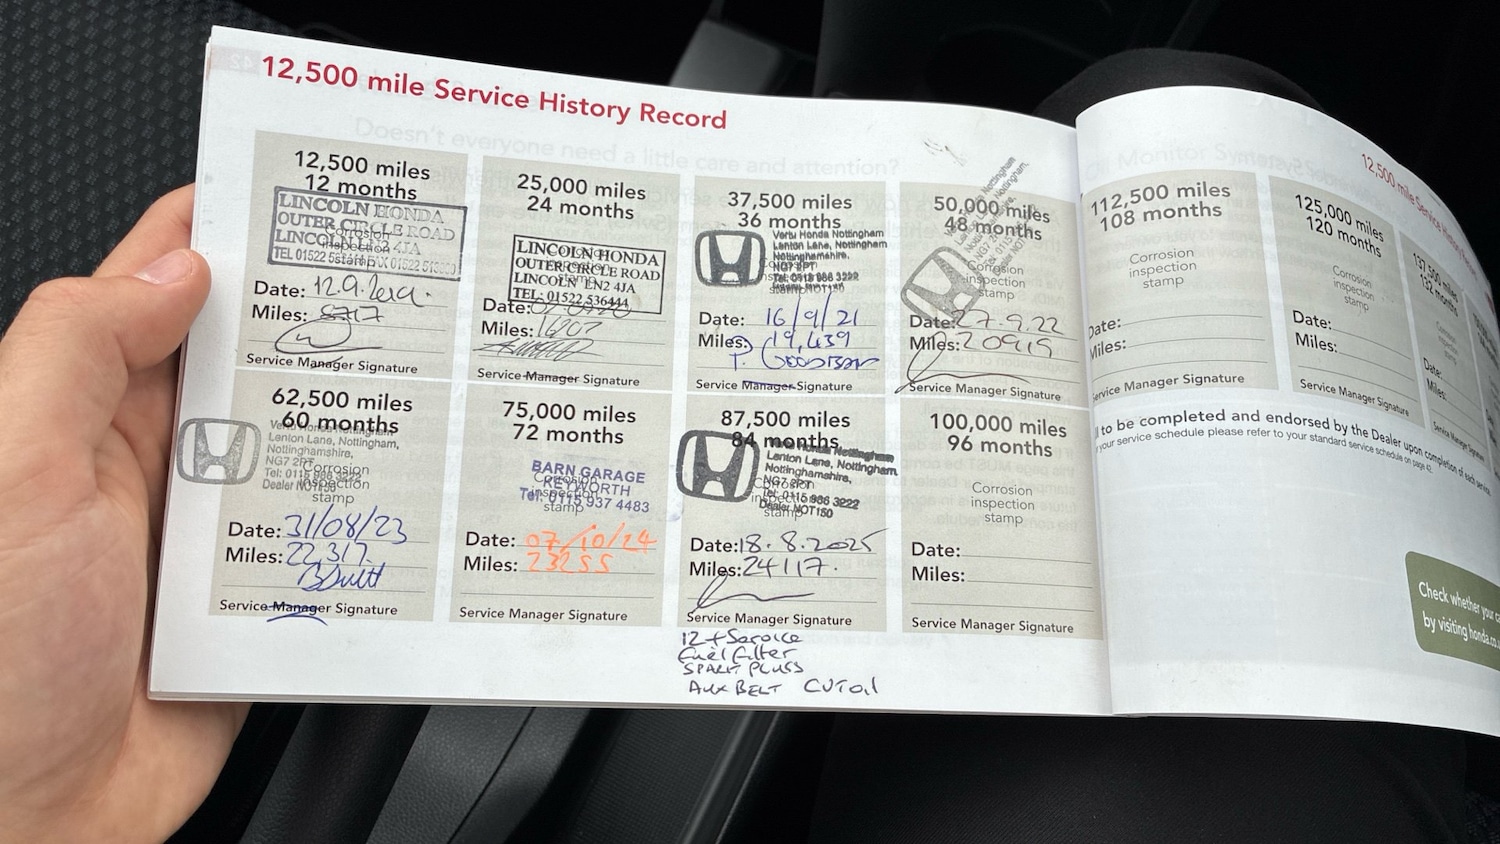 12,500 mile Service History Record
12,500 miles
12 months
LINCOLN HONDA
OUTER CIRCLE ROAD
LINCOLN LN2 4JA
Corrosion
inspection
stamp
Date: 12.9.
Miles: 8717
Service Manager Signature
25,000 miles
24 months
LINCOLN HONDA
OUTER CIRCLE ROAD
LINCOLN LN2 4JA
TEL: 01522 536444
Date:
Miles: 16207
Service Manager Signature
37,500 miles
36 months
Vertu Honda Nottingham
Lenton Lane, Nottingham
Nottinghamshire,
NG7 2PT
Tel. 0115 986 3222
stamp
Date: 16/9/21
Miles: 19,439
Service Manager Signature
50,000 miles
48 months
Corrosion
inspection
stamp
Date: 27.9.22
Miles: 20915
Service Manager Signature
62,500 miles
60 months
Vertu Honda Nottingham
Lenton Lane, Nottingham,
Nottinghamshire,
NG7 2PT
Tel: 0115 986 3222
Dealer NOT150
Corrosion
inspection
stamp
Date: 31/08/23
Miles: 22,317
Service Manager Signature
75,000 miles
72 months
BARN GARAGE
KEYWORTH
Tel: 0115 937 4483
Corrosion
inspection
stamp
Date: 07/10/24
Miles: 23255
Service Manager Signature
87,500 miles
84 months
Vertu Honda Nottingham
Lenton Lane, Nottingham,
Nottinghamshire,
NG7 2PT
Tel: 0115 986 3222
Dealer NOT150
stamp
Date: 18.8.2025
Miles: 24117.
Service Manager Signature
12+Service
Fuel Filter
SPARK PLUGS
AUX BELT CVT oil
100,000 miles
96 months
Corrosion
inspection
stamp
Date:
Miles:
Service Manager Signature
12,500 mile Service History
112,500 miles
108 months
Corrosion
inspection
stamp
Date:
Miles:
Service Manager Signature
125,000 miles
120 months
Corrosion
inspection
stamp
Date:
Miles:
Service Manager Signature
137,500 miles
132 months
Corrosion
inspection
stamp
Date:
Miles:
to be completed and endorsed by the Dealer upon completion of each service.
your service schedule please refer to your standard service schedule on page 42.
Check whether your
by visiting honda.co